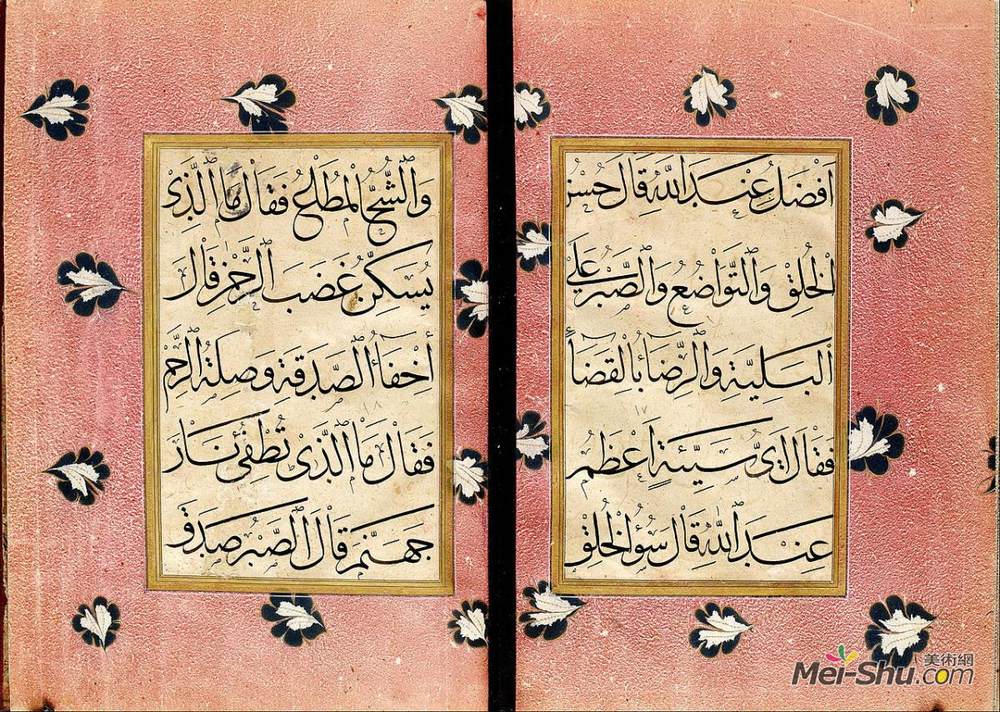 اَفْضَلُ عِنْدَ اللّٰهِ قَالَ حُسْنُ
الْخُلُقِ وَالتَّوَاضُعُ وَالصَّبْرُ عَلَى
الْبَلِيَّةِ وَالرِّضَاءُ بِالْقَضَاءِ
فَقَالَ اَيُّ سَيِّئَةٍ اَعْظَمُ
عِنْدَ اللّٰهِ قَالَ سُوءُ الْخُلُقِ
وَالشُّحُّ الْمُطَلَّعُ فَقَالَ مَا الَّذِي
يُسَكِّنُ غَضَبَ الرَّحْمٰنِ قَالَ
اَخْفَاءُ الصَّدَقَةِ وَصِلَةُ الرَّحِمِ
فَقَالَ مَا الَّذِي تُطْفِئُ نَارَ
جَهَنَّمَ قَالَ الصَّبْرُ صَدَقَ
美術網
Mei-Shu.com